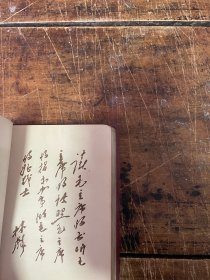 读毛主席的书听毛
主席的话照毛主席
的指示办事做毛主席
的好战士
林彪